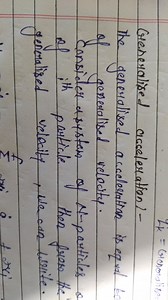 Generalised acceleration:-
The generalised acceleration is equal to
of generalised velocity.
Consider a system of N-particles
of ith particle, then from the
generalised velocity, we can write